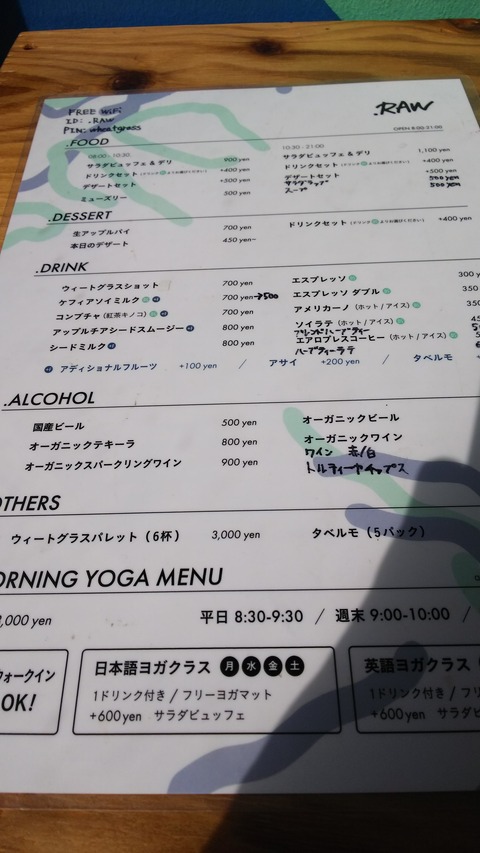 FREE WiFi
ID: .RAW
PIN: wheatgrass
.RAW
OPEN 8:00-21:00
.FOOD
08:00 - 10:30
サラダビュッフェ & デリ 900 yen
ドリンクセット +400 yen
デザートセット +500 yen
ミューズリー 500 yen
10:30 - 21:00
サラダビュッフェ & デリ 1,100 yen
ドリンクセット +400 yen
デザートセット +500 yen
サラダラップ 500 yen
スープ 500 yen
.DESSERT
生アップルパイ 700 yen
本日のデザート 450 yen~
ドリンクセット +400 yen
.DRINK
ウィートグラスショット 700 yen
ケフィアソイミルク 700 yen→500
コンブチャ (紅茶キノコ) 700 yen
アップルチアシードスムージー 800 yen
シードミルク 800 yen
エスプレッソ 300 y
エスプレッソ ダブル 350
アメリカーノ (ホット / アイス) 350
ソイラテ (ホット / アイス) 45
ブレンドハーブティー
エアロプレスコーヒー (ホット / アイス)
ハーブティーラテ
アディショナルフルーツ +100 yen / アサイ +200 yen / タベルモ
.ALCOHOL
国産ビール 500 yen
オーガニックテキーラ 800 yen
オーガニックスパークリングワイン 900 yen
オーガニックビール
オーガニックワイン
ワイン 赤/白
トルティーヤチップス
OTHERS
ウィートグラスパレット (6杯) 3,000 yen
タベルモ (5パック)
ORNING YOGA MENU
,000 yen
平日 8:30-9:30 / 週末 9:00-10:00 /
ウォークイン
OK!
日本語ヨガクラス 月 水 金 土
1ドリンク付き / フリーヨガマット
+600 yen サラダビュッフェ
英語ヨガクラス
1ドリンク付き / フリ
+600 yen サラダビ